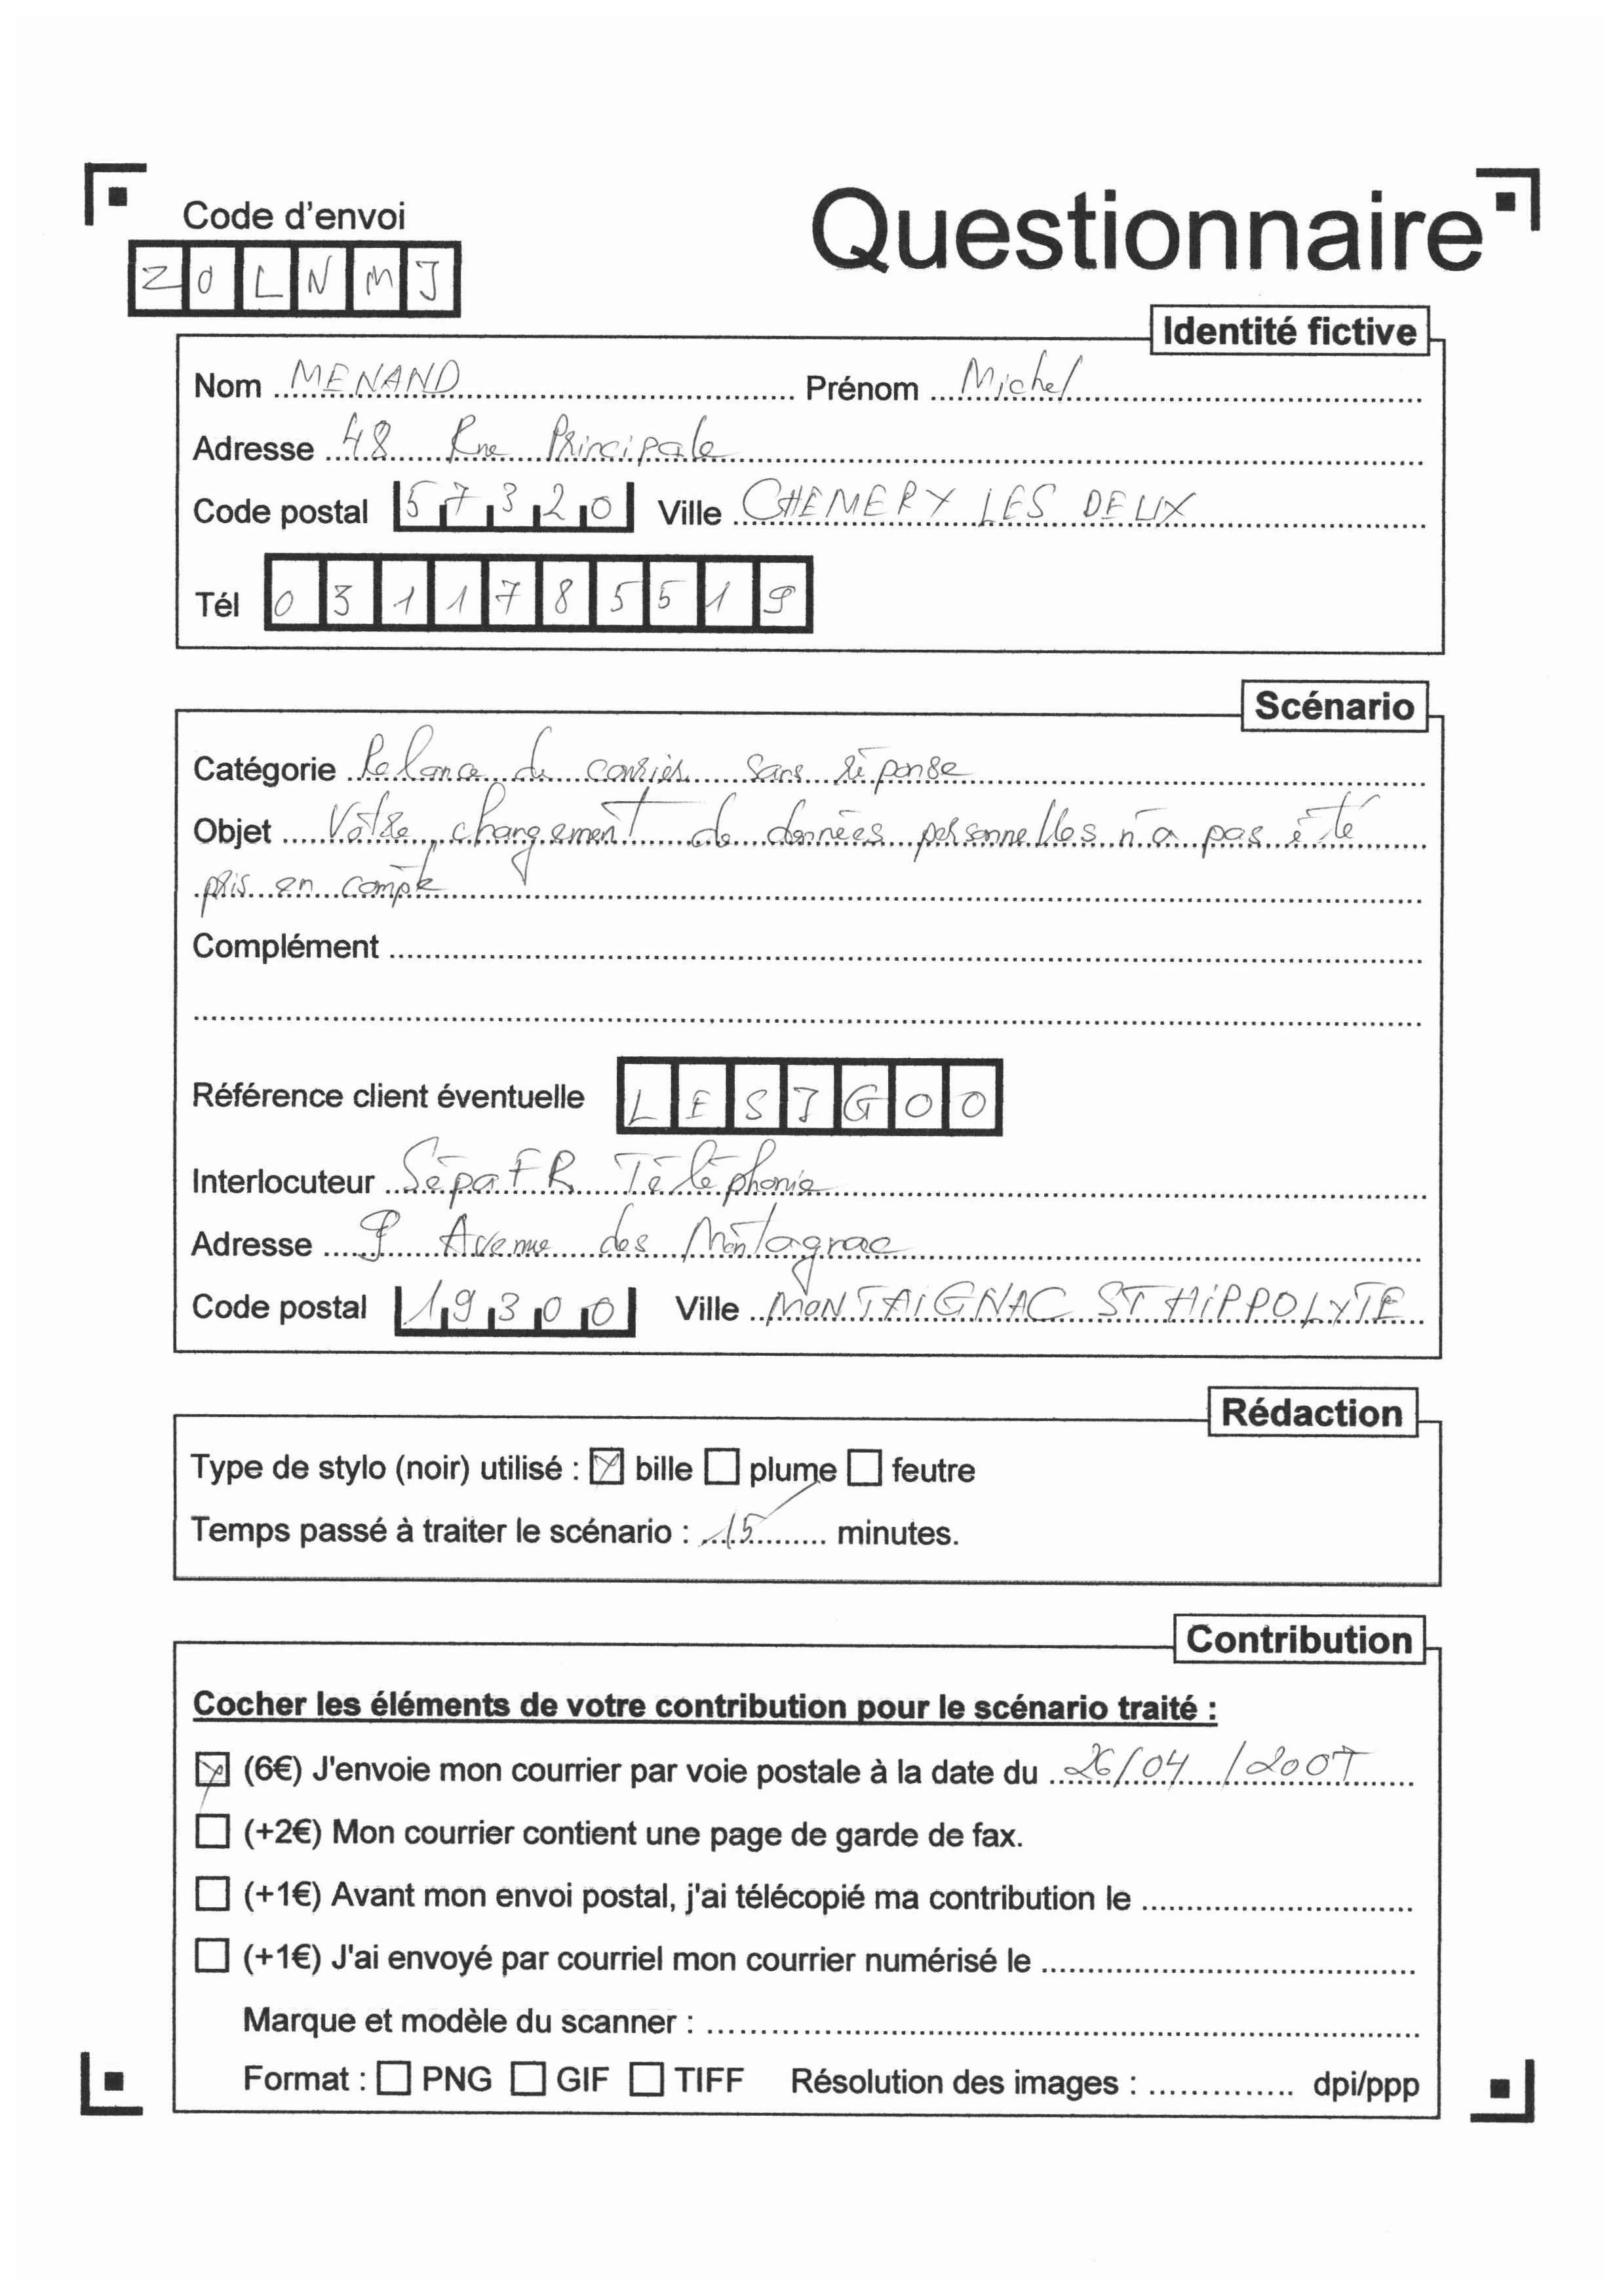 Questionnaire
Code d'envoi
Z O L N M J
Identité fictive
Nom MENAND Prénom Michel
Adresse 48 Rue Principale
Code postal 57320 Ville CHEMERY LES DEUX
Tél 0311785519
Scénario
Catégorie Relance de courrier sans réponse
Objet Votre changement de données personnelles n'a pas été
pris en compte
Complément
Référence client éventuelle LESJG00
Interlocuteur SépaFR Téléphonie
Adresse 9 Avenue des Montagnac
Code postal 19300 Ville MONTAIGNAC ST HIPPOLYTE
Rédaction
Type de stylo (noir) utilisé : bille plume feutre
Temps passé à traiter le scénario : 15 minutes.
Contribution
Cocher les éléments de votre contribution pour le scénario traité :
(6€) J'envoie mon courrier par voie postale à la date du 26/04/2007
(+2€) Mon courrier contient une page de garde de fax.
(+1€) Avant mon envoi postal, j'ai télécopié ma contribution le
(+1€) J'ai envoyé par courriel mon courrier numérisé le
Marque et modèle du scanner :
Format : PNG GIF TIFF Résolution des images : dpi/ppp